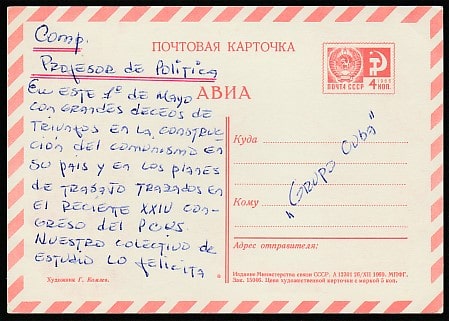 Comp.
Profesor de Política
En este 1º de Mayo
con grandes deceos de
triunfos en la construc
ción del comunismo en
su pais y en los planes
de trabajo trazados en
el reciente XXIV con-
greso del PCUS.
Nuestro colectivo de
estudio lo felicita
ПОЧТОВАЯ КАРТОЧКА
АВИА
1966
ПОЧТА СССР
4 КОП.
Куда
Кому
"Grupo Cuba"
Адрес отправителя:
Художник Г. Комлев.
Издание Министерства связи СССР. А 13701 26/XII 1969. МПФГ.
Зак. 15006. Цена художественной карточки с маркой 5 коп.